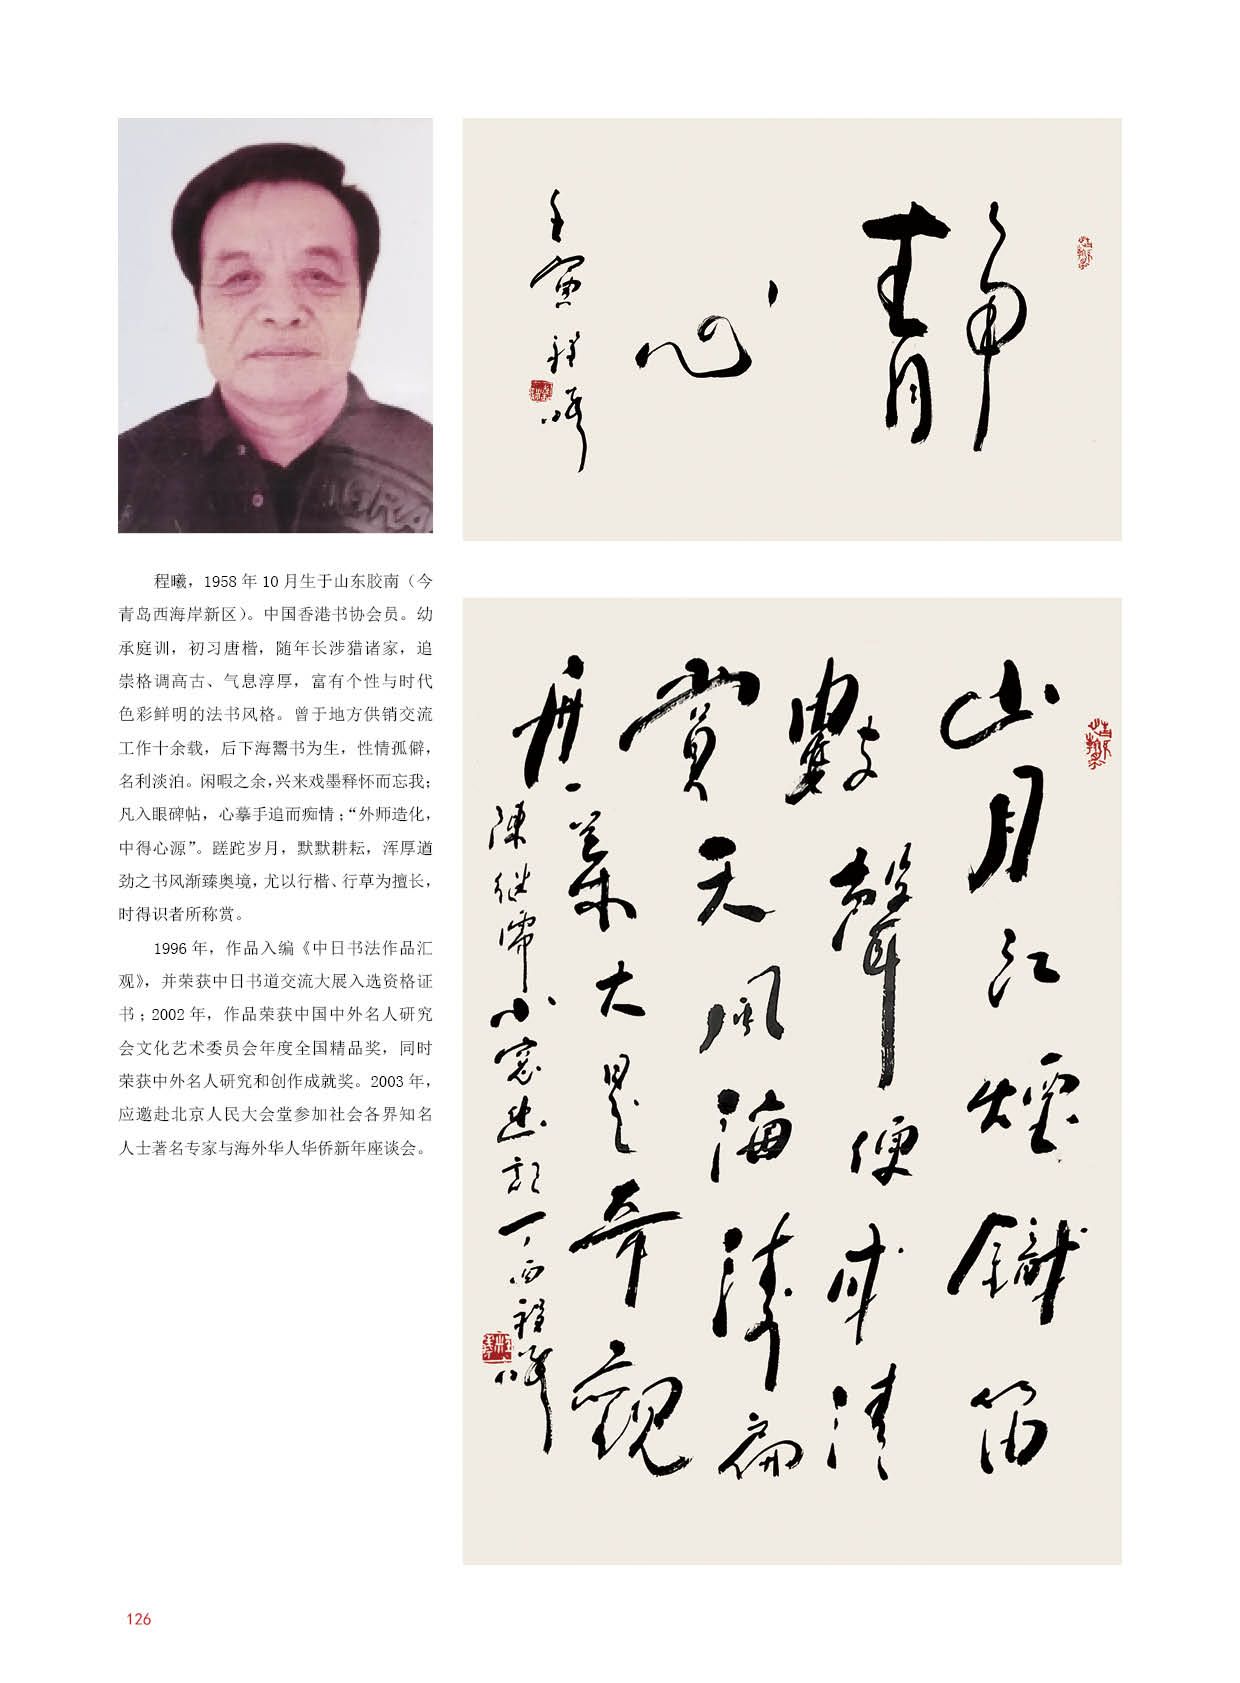 程曦，1958 年 10 月生于山东胶南（今
青岛西海岸新区）。中国香港书协会员。幼
承庭训，初习唐楷，随年长涉猎诸家，追
崇格调高古、气息淳厚，富有个性与时代
色彩鲜明的法书风格。曾于地方供销交流
工作十余载，后下海鬻书为生，性情孤僻，
名利淡泊。闲暇之余，兴来戏墨释怀而忘我；
凡入眼碑帖，心摹手追而痴情；“外师造化，
中得心源”。蹉跎岁月，默默耕耘，浑厚遒
劲之书风渐臻奥境，尤以行楷、行草为擅长，
时得识者所称赏。
1996 年，作品入编《中日书法作品汇
观》，并荣获中日书道交流大展入选资格证
书；2002 年，作品荣获中国中外名人研究
会文化艺术委员会年度全国精品奖，同时
荣获中外名人研究和创作成就奖。2003 年，
应邀赴北京人民大会堂参加社会各界知名
人士著名专家与海外华人华侨新年座谈会。
靜
心
壬寅程曦
山月江煙鐵笛
數聲便成清
賞天風海濤扁
舟一葉大是奇觀
陳继儒小窓幽記丁酉程曦
126